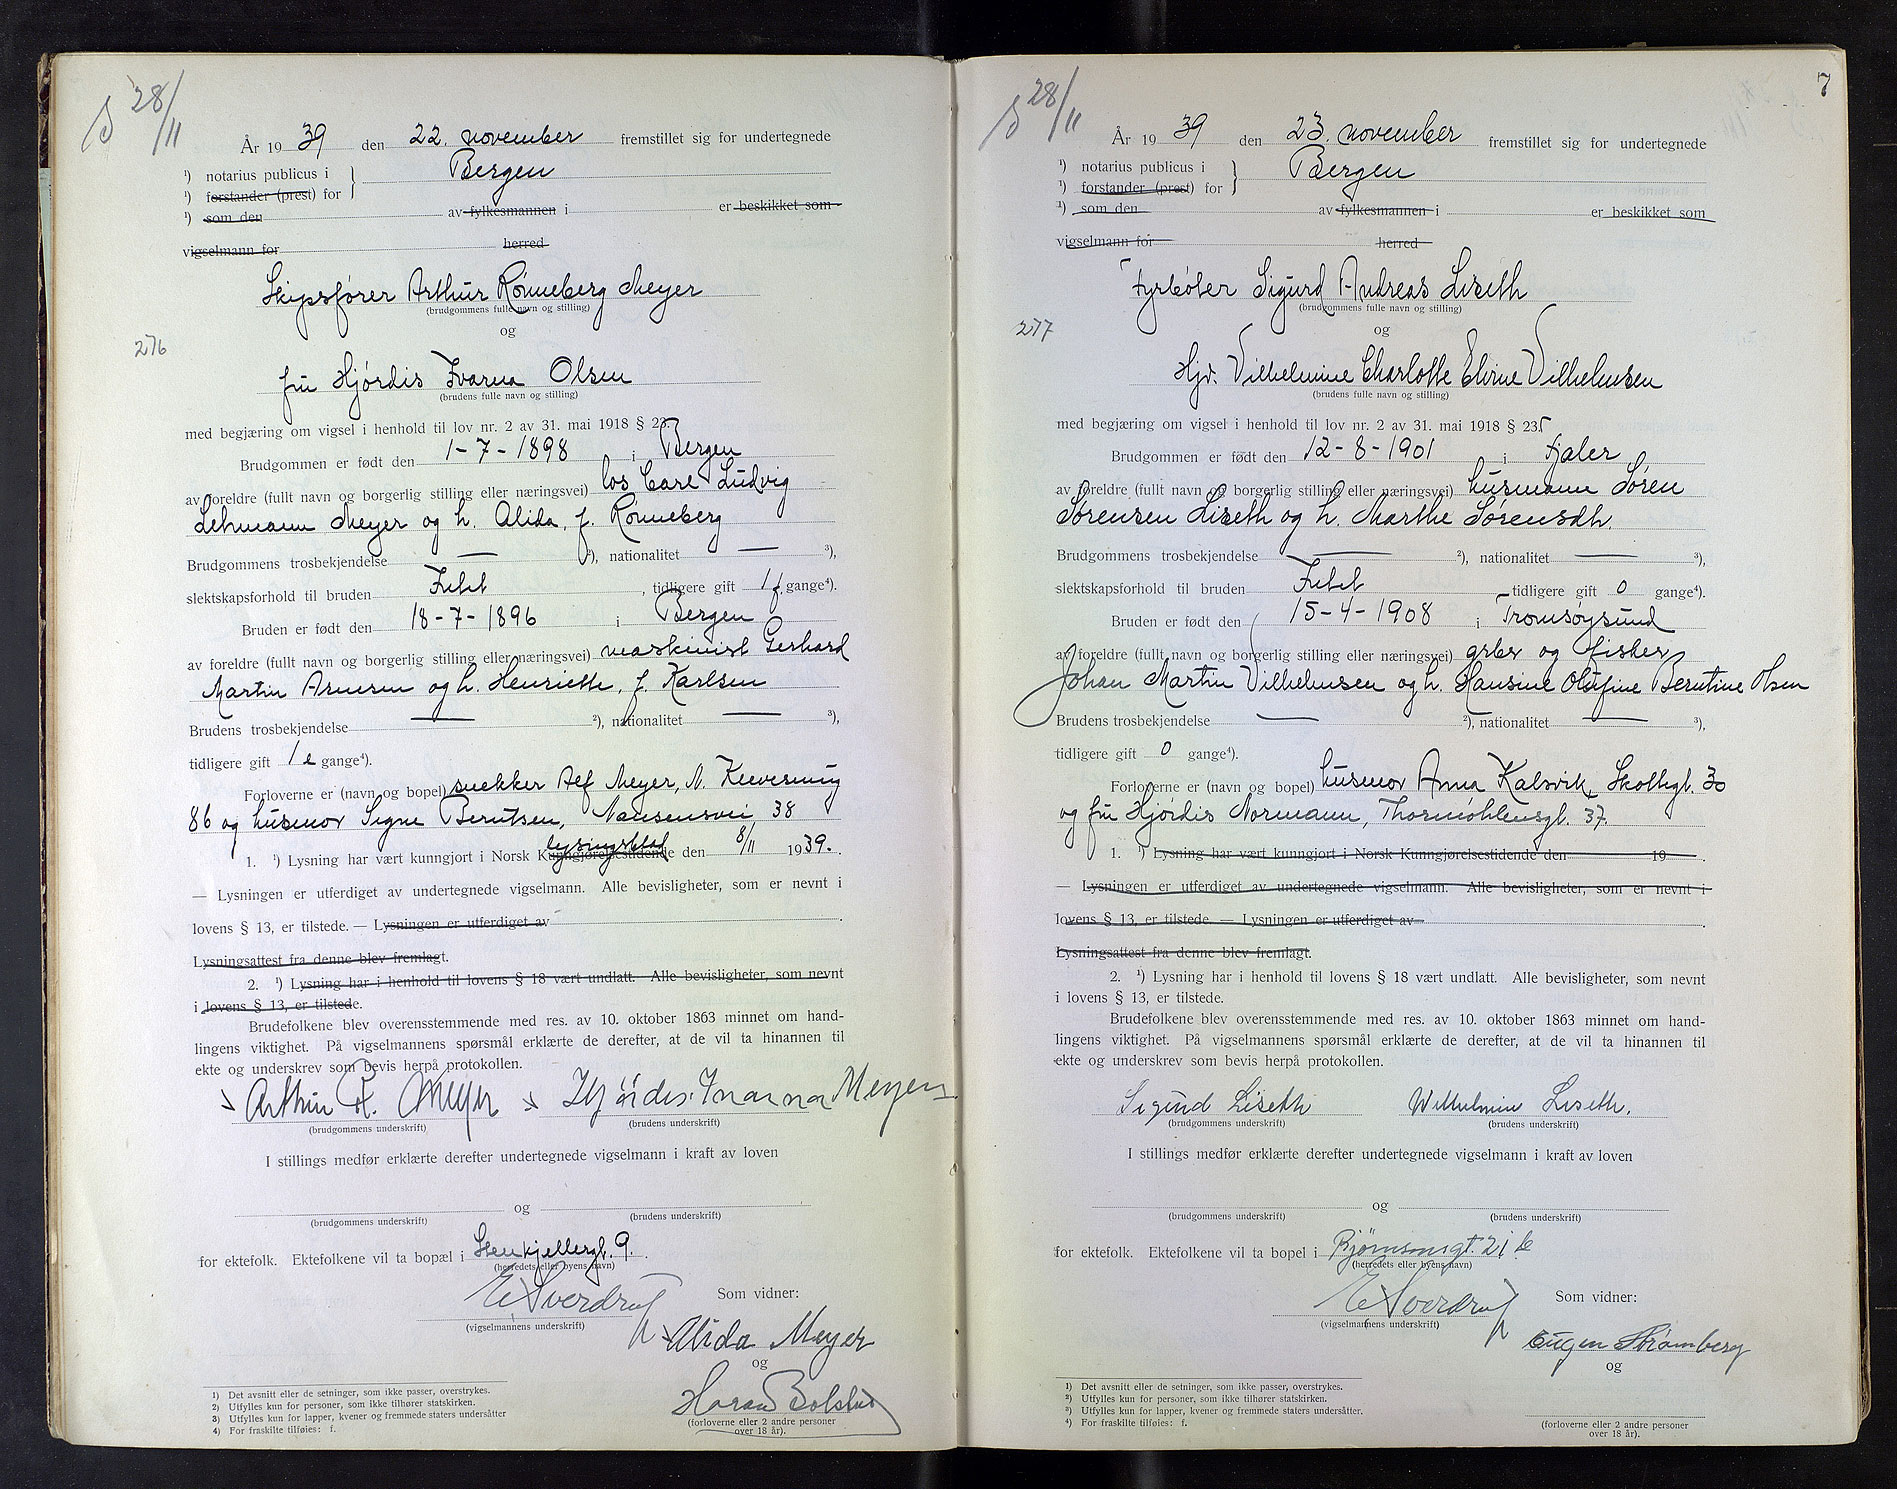 28/11
År 1939 den 22. november fremstillet sig for undertegnede
¹) notarius publicus i
¹) forstander (prest) for } Bergen
¹) som den av fylkesmannen i er beskikket som
vigselmann for herred
Skipsfører Arthur Rønneberg Meyer
(brudgommens fulle navn og stilling)
og
276
fru Hjørdis Ivarna Olsen
(brudens fulle navn og stilling)
med begjæring om vigsel i henhold til lov nr. 2 av 31. mai 1918 § 23.
Brudgommen er født den 1-7-1898 i Bergen
av foreldre (fullt navn og borgerlig stilling eller næringsvei) los Carl Ludvig
Lehmann Meyer og h. Alida, f. Rønneberg
Brudgommens trosbekjendelse — ²), nationalitet — ³),
slektskapsforhold til bruden Intet, tidligere gift 1 f. gange⁴).
Bruden er født den 18-7-1896 i Bergen
av foreldre (fullt navn og borgerlig stilling eller næringsvei) maskinist Gerhard
Martin Arnesen og h. Henriette, f. Karlsen
Brudens trosbekjendelse — ²), nationalitet — ³),
tidligere gift 1 e gange⁴).
Forloverne er (navn og bopel) snekker Alf Meyer, N.
86 og husmor Signe Berntsen, Nansensvei 38
1. ¹) Lysning har vært kunngjort i Norsk Kunngjørelsestidende lysingsblad den 8/11 1939.
— Lysningen er utferdiget av undertegnede vigselmann. Alle bevisligheter, som er nevnt i
lovens § 13, er tilstede. — Lysningen er utferdiget av
Lysningsattest fra denne blev fremlagt.
2. ¹) Lysning har i henhold til lovens § 18 vært undlatt. Alle bevisligheter, som nevnt
i lovens § 13, er tilstede.
Brudefolkene blev overensstemmende med res. av 10. oktober 1863 minnet om hand-
lingens viktighet. På vigselmannens spørsmål erklærte de derefter, at de vil ta hinannen til
ekte og underskrev som bevis herpå protokollen.
Arthur R. Meyer Hjørdis Ivarna Meyer
(brudgommens underskrift) (brudens underskrift)
I stillings medfør erklærte derefter undertegnede vigselmann i kraft av loven
og
(brudgommens underskrift) (brudens underskrift)
for ektefolk. Ektefolkene vil ta bopæl i Steinkjellergt. 9.
(herredets eller byens navn)
E Sverdrup
(vigselmannens underskrift)
Som vidner:
Alida Meyer
og
Bolstad
(forloverne eller 2 andre personer
over 18 år).
1) Det avsnitt eller de setninger, som ikke passer, overstrykes.
2) Utfylles kun for personer, som ikke tilhører statskirken.
3) Utfylles kun for lapper, kvener og fremmede staters undersåtter
4) For fraskilte tilføies: f.
7
28/11
År 1939 den 23. november fremstillet sig for undertegnede
¹) notarius publicus i
¹) forstander (prest) for } Bergen
¹) som den av fylkesmannen i er beskikket som
vigselmann for herred
Fyrbøter Sigurd Andreas Liseth
(brudgommens fulle navn og stilling)
og
277
Hjv. Vilhelmine Charlotte Elvine Vilhelmsen
(brudens fulle navn og stilling)
med begjæring om vigsel i henhold til lov nr. 2 av 31. mai 1918 § 23.
Brudgommen er født den 12-8-1901 i Fjaler
av foreldre (fullt navn og borgerlig stilling eller næringsvei) husmann Søren
Sørensen Liseth og h. Marthe Sørensdtr.
Brudgommens trosbekjendelse — ²), nationalitet — ³),
slektskapsforhold til bruden Intet tidligere gift 0 gange⁴).
Bruden er født den 15-4-1908 i Tromsøysund
av foreldre (fullt navn og borgerlig stilling eller næringsvei) grbr og fisker
Johan Martin Vilhelmsen og h. Hansine Olufine Berntine Olsen
Brudens trosbekjendelse — ²), nationalitet — ³),
tidligere gift 0 gange⁴).
Forloverne er (navn og bopel) husmor Anna Kalsvik, Skottegt. 30
og fru Hjørdis Normann, Thormøhlensgt. 37.
1. ¹) Lysning har vært kunngjort i Norsk Kunngjørelsestidende den 19 .
— Lysningen er utferdiget av undertegnede vigselmann. Alle bevisligheter, som er nevnt i
lovens § 13, er tilstede. — Lysningen er utferdiget av
Lysningsattest fra denne blev fremlagt.
2. ¹) Lysning har i henhold til lovens § 18 vært undlatt. Alle bevisligheter, som nevnt
i lovens § 13, er tilstede.
Brudefolkene blev overensstemmende med res. av 10. oktober 1863 minnet om hand-
lingens viktighet. På vigselmannens spørsmål erklærte de derefter, at de vil ta hinannen til
ekte og underskrev som bevis herpå protokollen.
Sigurd Liseth Wilhelmine Liseth.
(brudgommens underskrift) (brudens underskrift)
I stillings medfør erklærte derefter undertegnede vigselmann i kraft av loven
og
(brudgommens underskrift) (brudens underskrift)
for ektefolk. Ektefolkene vil ta bopel i Bjørnsonsgt. 21 b
(herredets eller byens navn)
E Sverdrup
(vigselmannens underskrift)
Som vidner:
Eugen Strømberg
og
(forloverne eller 2 andre personer
over 18 år).
¹) Det avsnitt eller de setninger, som ikke passer, overstrykes.
²) Utfylles kun for personer, som ikke tilhører statskirken.
³) Utfylles kun for lapper, kvener og fremmede staters undersåtter.
⁴) For fraskilte tilføies: f.